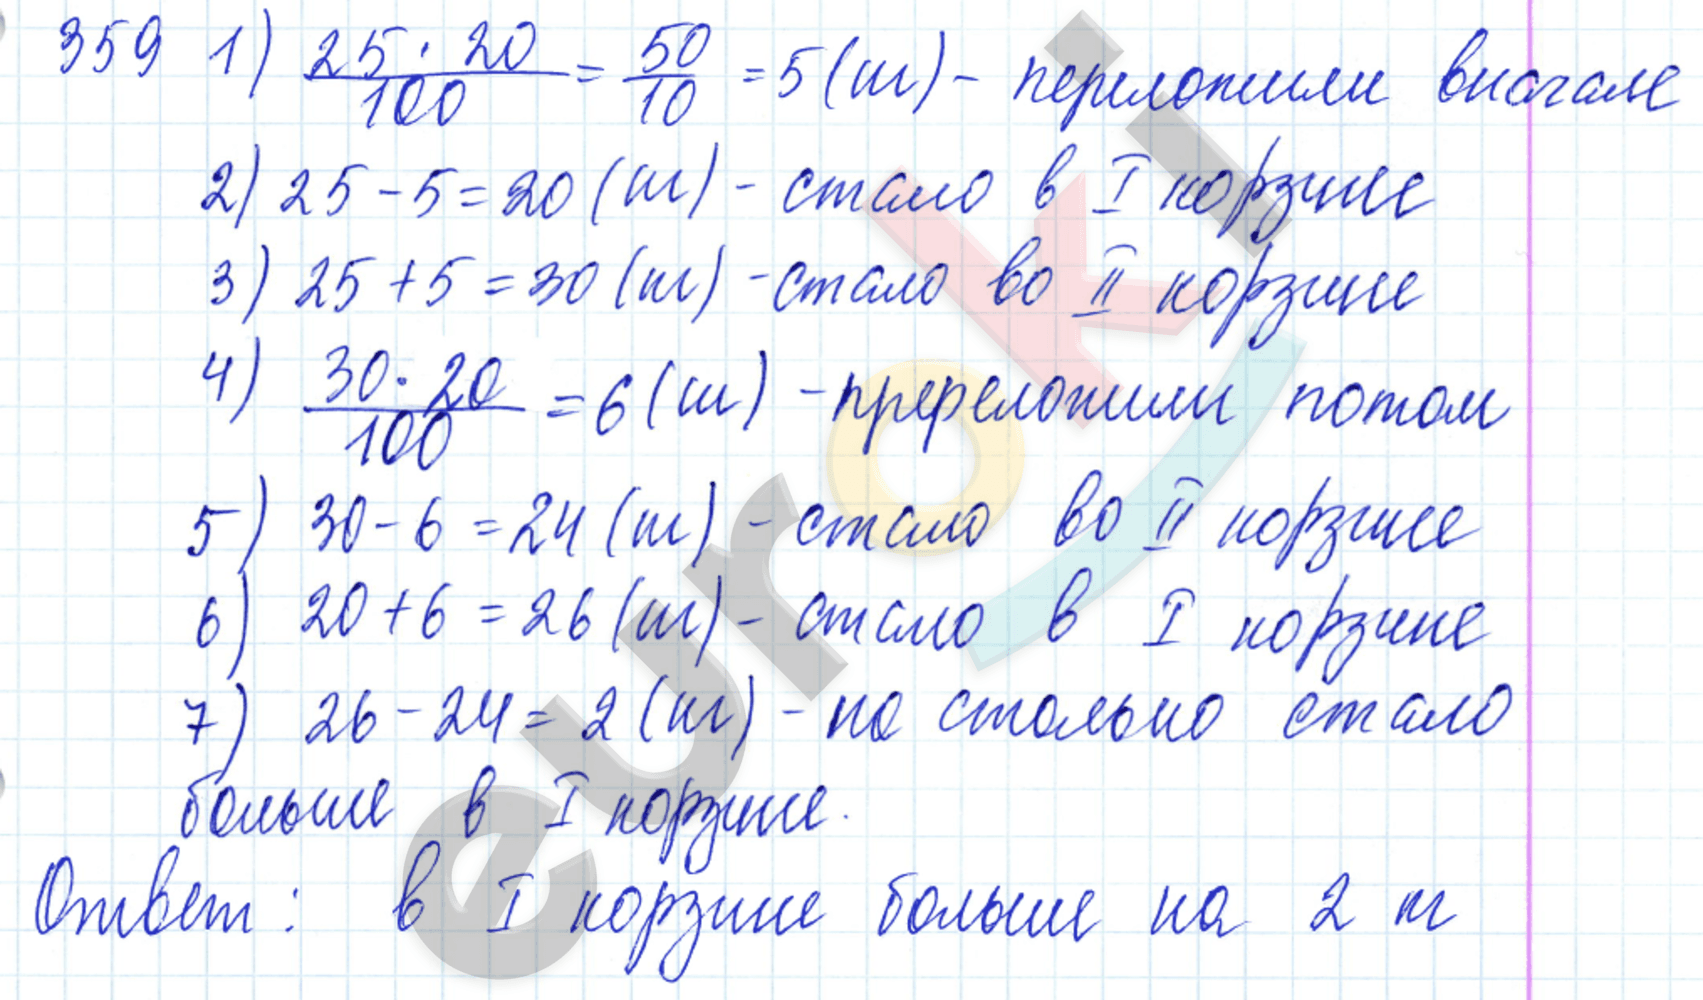 359 1) 25 · 20 / 100 = 50 / 10 = 5 (кг) - переложили вначале
2) 25 - 5 = 20 (кг) - стало в I корзине
3) 25 + 5 = 30 (кг) - стало во II корзине
4) 30 · 20 / 100 = 6 (кг) - пререложили потом
5) 30 - 6 = 24 (кг) - стало во II корзине
6) 20 + 6 = 26 (кг) - стало в I корзине
7) 26 - 24 = 2 (кг) - на столько стало
больше в I корзине.
Ответ: в I корзине больше на 2 кг
euroki